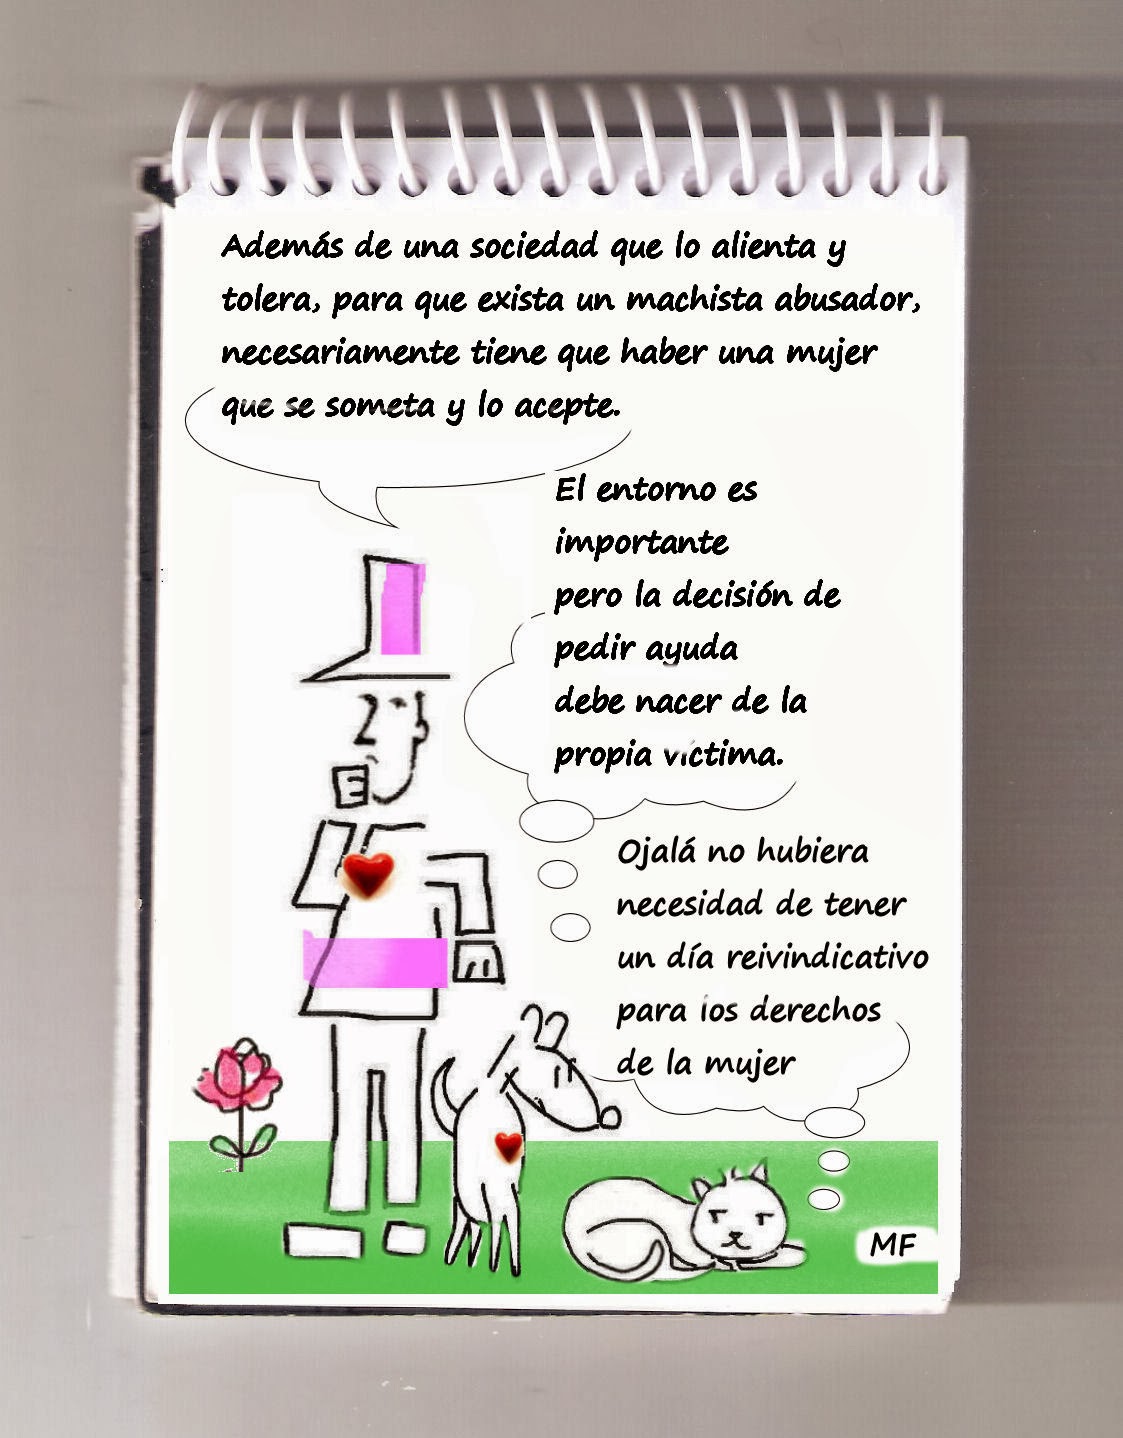 Además de una sociedad que lo alienta y
tolera, para que exista un machista abusador,
necesariamente tiene que haber una mujer
que se someta y lo acepte.
El entorno es
importante
pero la decisión de
pedir ayuda
debe nacer de la
propia víctima.
Ojalá no hubiera
necesidad de tener
un día reivindicativo
para los derechos
de la mujer
MF